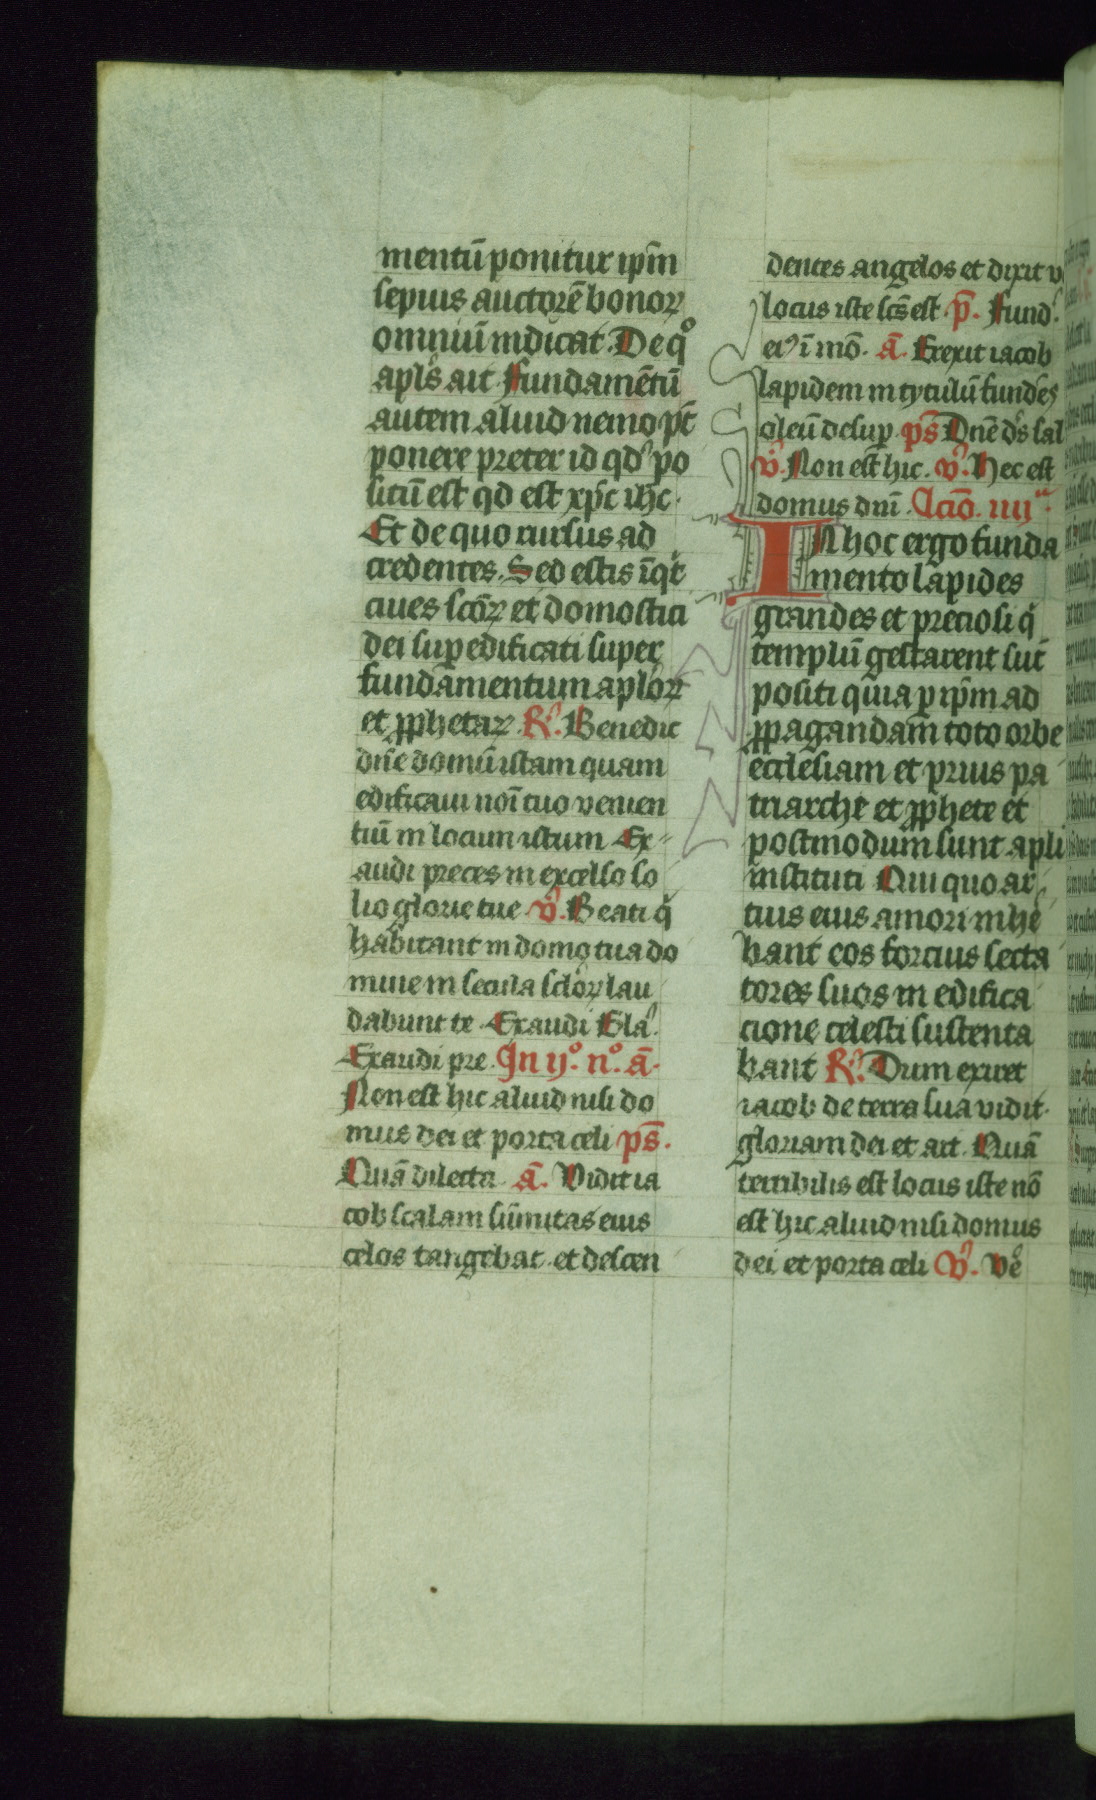 mentū ponitur ip̄m
sepius auctorē bonoꝝ
omniū indicat. De qͦ
apl̓s ait Fundamētū
autem aliud nemo pōt
ponere preter id qd̓ po
situ̅ est qd est xp̄c ih̄c.
Et de quo rursus ad
credentes. Sed estis īqͥt
ciues scōꝝ et domestici
dei suꝑedificati super
fundamentum apl̓oꝝ
et ꝓphetaꝝ. R̸. Benedic
dn̄e domū istam quam
edificaui noī tuo venien
tiū in locum istum Ex-
audi preces in excelso so
lio glorie tue v̓. Beati qͥ
habitant in domo tua do
mine in secula scl̓oꝝ lau
dabunt te. Exaudi Gla̓.
Exaudi pre. In ijͦ. nͦ. ā.
Non est hic aliud nisi do
mus dei et porta celi ps̄.
Quā dilecta. ā. Vidit ia
cob scalam sūmitas eius
celos tangebat. et descen
dentes angelos et dixit v
locus iste scs̄ est. p̄. Fund̓.
ei̓ ī mō. ā. Erexit iacob
lapidem in tytulū fundēs
oleū desuꝑ. ps̄ Dn̄e d̓s sal
v̓. Non est hic. v̓. Hec est
domus dn̄i. Lc̄io. iiijᵃ.
IN hoc ergo funda
mento lapides
grandes et preciosi qͥ
templū gestarent sūt
positi quia ꝑ ip̄m ad
ꝓpagandam̄ toto orbe
ecclesiam et prius pa
triarche et ꝓphete et
postmodum sunt apl̓i
instituti Qui quo ar
tius eius amori inhe̓
bant eos forcius secta
tores suos in edifica
cione celesti sustenta
bant R̸. Dum exiret
iacob de terra sua vidit.
gloriam dei et ait. Quā
terribilis est locus iste nō
est hic aliud nisi domus
dei et porta celi V̓. Ve̓